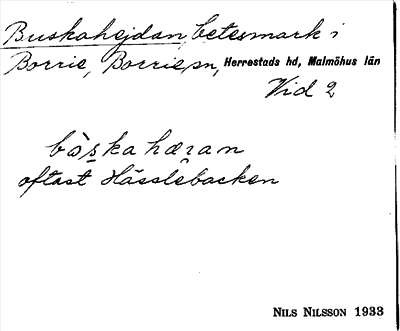 Buskahejdan, betesmark i
Borrie, Borrie sn, Herrestads hd, Malmöhus län
Vid 2
bòskahæran
oftast Hässlebacken
NILS NILSSON 1933